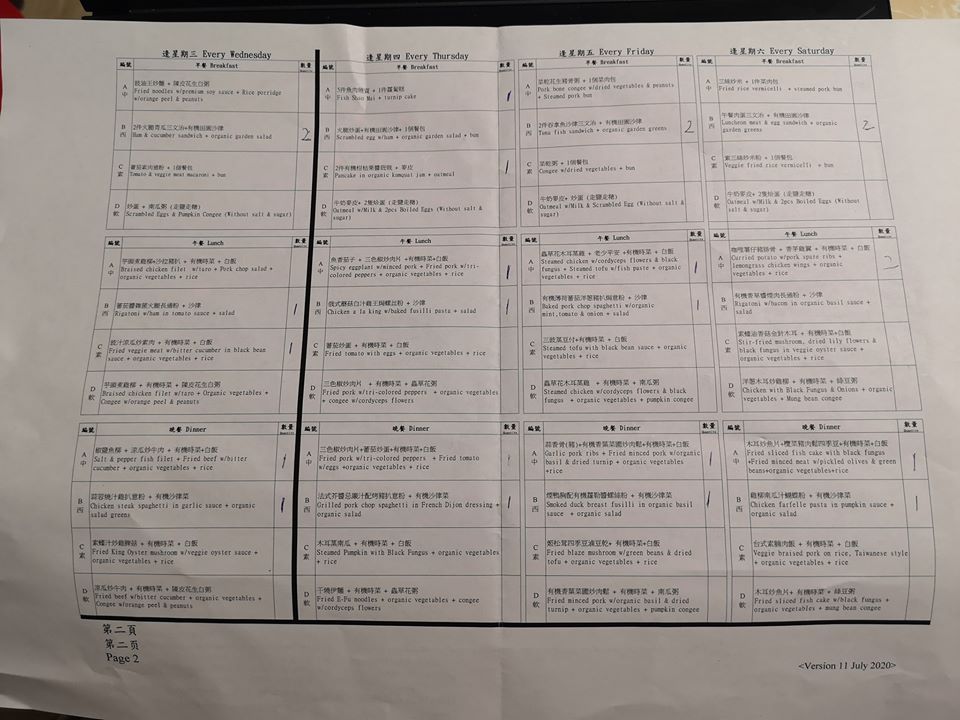 逢星期三 Every Wednesday
編號 早餐 Breakfast 數量
A 中 豉油王炒麵 + 陳皮花生白粥
Fried noodles w/premium soy sauce + Rice porridge
w/orange peel & peanuts
B 西 2件火腿青瓜三文治+ 有機田園沙律
Ham & cucumber sandwich + organic garden salad
2
C 素 蕃茄素肉通粉 + 1個餐包
Tomato & veggie meat macaroni + bun
D 軟 炒蛋 + 南瓜粥 (走鹽走糖)
Scrambled Eggs & Pumpkin Congee (Without salt & sugar)
編號 午餐 Lunch 數量
A 中 芋頭煮雞柳+沙拉豬扒 + 有機時菜 + 白飯
Braised chicken filet w/taro + Pork chop salad +
organic vegetables + rice
B 西 蕃茄醬雜菌火腿長通粉 + 沙律
Rigatoni w/ham in tomato sauce + salad
1
C 素 豉汁涼瓜炒素肉 + 有機時菜 + 白飯
Fried veggie meat w/bitter cucumber in black bean
sauce + organic vegetables + rice
1
D 軟 芋頭煮雞柳 + 有機時菜 + 陳皮花生白粥
Braised chicken filet w/taro + Organic vegetables +
Congee w/orange peel & peanuts
編號 晚餐 Dinner 數量
A 中 椒鹽魚柳 + 涼瓜炒牛肉 + 有機時菜 + 白飯
Salt & pepper fish filet + Fried beef w/bitter
cucumber + organic vegetables + rice
1
B 西 蒜蓉燒汁雞扒意粉 + 有機沙律菜
Chicken steak spaghetti in garlic sauce + organic
salad greens
1
C 素 素蠔汁炒雞髀菇 + 有機時菜 + 白飯
Fried King Oyster mushroom w/veggie oyster sauce +
organic vegetables + rice
D 軟 涼瓜炒牛肉 + 有機時菜 + 陳皮花生白粥
Fried beef w/bitter cucumber + organic vegetables +
Congee w/orange peel & peanuts
逢星期四 Every Thursday
編號 早餐 Breakfast 數量
A 中 5件魚肉燒賣 + 1件蘿蔔糕
Fish Shao Mai + turnip cake
1
B 西 火腿炒蛋+有機田園沙律+ 1個餐包
Scrambled egg w/ham + organic garden salad + bun
C 素 2件有機柑桔果醬班戟 + 麥皮
Pancake in organic kumquat jam + oatmeal
1
D 軟 牛奶麥皮+ 2隻烚蛋 (走鹽走糖)
Oatmeal w/Milk & 2pcs Boiled Eggs (Without salt &
sugar)
編號 午餐 Lunch 數量
A 中 魚香茄子 + 三色椒炒肉片 + 有機時菜+白飯
Spicy eggplant w/minced pork + Fried pork w/tri-
colored peppers + organic vegetables + rice
1
B 西 俄式蘑菇白汁雞王焗螺絲粉 + 沙律
Chicken a la king w/baked fusilli pasta + salad
1
C 素 蕃茄炒蛋 + 有機時菜 + 白飯
Fried tomato with eggs + organic vegetables + rice
D 軟 三色椒炒肉片 + 有機時菜 + 蟲草花粥
Fried pork w/tri-colored peppers + organic vegetables
+ congee w/cordyceps flowers
編號 晚餐 Dinner 數量
A 中 三色椒炒肉片+蕃茄炒蛋+有機時菜+白飯
Fried pork w/tri-colored peppers + Fried tomato
w/eggs +organic vegetables +rice
1
B 西 法式芥醬忌廉汁配烤豬扒意粉 + 有機沙律菜
Grilled pork chop spaghetti in French Dijon dressing +
organic salad
1
C 素 木耳蒸南瓜 + 有機時菜 + 白飯
Steamed Pumpkin with Black Fungus + organic vegetables
+ rice
D 軟 干燒伊麵 + 有機時菜 + 蟲草花粥
Fried E-Fu noodles + organic vegetables + congee
w/cordyceps flowers
逢星期五 Every Friday
編號 早餐 Breakfast 數量
A 中 菜乾花生豬骨粥 + 1個菜肉包
Pork bone congee w/dried vegetables & peanuts
+ Steamed pork bun
B 西 2件吞拿魚沙律三文治+ 有機田園沙律
Tuna fish sandwich + organic garden greens
2
C 素 菜乾粥 + 1個餐包
Congee w/dried vegetables + bun
D 軟 牛奶麥皮+ 炒蛋 (走鹽走糖)
Oatmeal w/Milk & Scrambled Egg (Without salt &
sugar)
編號 午餐 Lunch 數量
A 中 蟲草花木耳蒸雞 + 老少平安 +有機時菜 + 白飯
Steamed chicken w/cordyceps flowers & black
fungus + Steamed tofu w/fish paste + organic
vegetables + rice
1
B 西 有機薄荷蕃茄洋葱豬扒焗意粉 + 沙律
Baked pork chop spaghetti w/organic
mint,tomato & onion + salad
1
C 素 三豉蒸豆付+有機時菜 + 白飯
Steamed tofu with black bean sauce + organic
vegetables + rice
D 軟 蟲草花木耳蒸雞 + 有機時菜 + 南瓜粥
Steamed chicken w/cordyceps flowers & black
fungus + organic vegetables + pumpkin congee
編號 晚餐 Dinner 數量
A 中 蒜香骨(豬)+有機香葉菜圃炒肉鬆+有機時菜+白飯
Garlic pork ribs + Fried minced pork w/organic
basil & dried turnip + organic vegetables
+rice
1
B 西 煙鴨胸配有機羅勒醬螺絲粉 + 有機沙律菜
Smoked duck breast fusilli in organic basil
sauce + organic salad
1
C 素 姬松茸四季豆滷豆乾+ 有機時菜+白飯
Fried blaze mushroom w/green beans & dried
tofu + organic vegetables + rice
D 軟 有機香葉菜圃炒肉鬆 + 有機時菜 + 南瓜粥
Fried minced pork w/organic basil & dried
turnip + organic vegetables + pumpkin congee
逢星期六 Every Saturday
編號 早餐 Breakfast 數量
A 中 三絲炒米 + 1件菜肉包
Fried rice vermicelli + steamed pork bun
B 西 午餐肉蛋三文治+ 有機田園沙律
Luncheon meat & egg sandwich + organic
garden greens
2
C 素 素三絲炒米粉 + 1個餐包
Veggie fried rice vermicelli + bun
D 軟 牛奶麥皮+ 2隻烚蛋 (走鹽走糖)
Oatmeal w/Milk & 2pcs Boiled Eggs (Without
salt & sugar)
編號 午餐 Lunch 數量
A 中 咖喱薯仔豬腩骨 + 香茅雞翼 + 有機時菜 + 白飯
Curried potato w/pork spare ribs +
lemongrass chicken wings + organic
vegetables + rice
2
B 西 有機香草醬煙肉長通粉 + 沙律
Rigatoni w/bacon in organic basil sauce +
salad
C 素 素蠔油香菇金針木耳 + 有機時菜+白飯
Stir-fried mushroom, dried lily flowers &
black fungus in veggie oyster sauce +
organic vegetables + rice
D 軟 洋葱木耳炒雞柳 + 有機時菜 + 綠豆粥
Chicken with Black Fungus & Onions + organic
vegetables + Mung bean congee
編號 晚餐 Dinner 數量
A 中 木耳炒魚片+欖菜豬肉鬆四季豆+有機時菜+白飯
Fried sliced fish cake with black fungus
+Fried minced meat w/pickled olives & green
beans+organic vegetables+rice
1
B 西 雞柳南瓜汁蝴蝶粉 + 有機沙律菜
Chicken farfelle pasta in pumpkin sauce +
organic salad
1
C 素 台式素腩肉飯 + 有機時菜
Veggie braised pork on rice, Taiwanese style
+ organic vegetables
D 軟 木耳炒魚片+ 有機時菜 + 綠豆粥
Fried sliced fish cake w/black fungus +
organic vegetables + mung bean congee
第二頁
第二页
Page 2
<Version 11 July 2020>